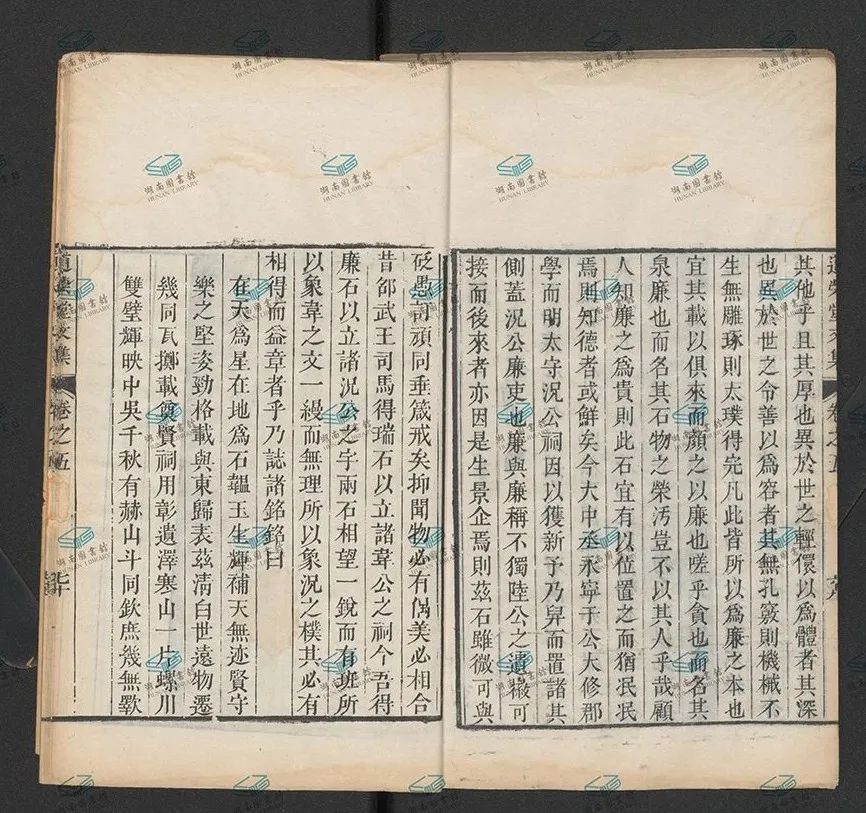 其他乎且其厚也異於世之輕儇以爲體者其深
也異於世之令善以爲容者其無孔竅則機械不
生無雕琢則太璞得完凡此皆所以爲廉之本也
宜其載以俱來而顏之以廉也嗟乎貪也而名其
泉廉也而名其石物之榮汚豈不以其人乎哉顧
人知廉之爲貴則此石宜有以位置之而猶泯泯
焉則知德者或鮮矣今大中丞永寧于公大修郡
學而明太守況公祠因以獲新予乃舁而置諸其
側蓋況公廉吏也廉與廉稱不獨陸公之遺徽可
接而後來者亦因是生景企焉則茲石雖微可與
砭愚訂頑同垂箴戒矣抑聞物必有偶美必相合
昔邵武王司馬得瑞石以立諸韋公之祠今吾得
廉石以立諸況公之宇兩石相望一銳而有班所
以象韋之文一縵而無理所以象況之樸其必有
相得而益章者乎乃誌諸銘銘曰
在天爲星在地爲石韞玉生輝補天無迹賢守
樂之堅姿勁格載與東歸表茲淸白世遠物遷
幾同瓦擲載奠賢祠用彰遺澤寒山一片螺川
雙璧輝映中吳千秋有赫山斗同欽庶幾無斁
卷之五
湖南圖書館
HUNAN LIBRARY